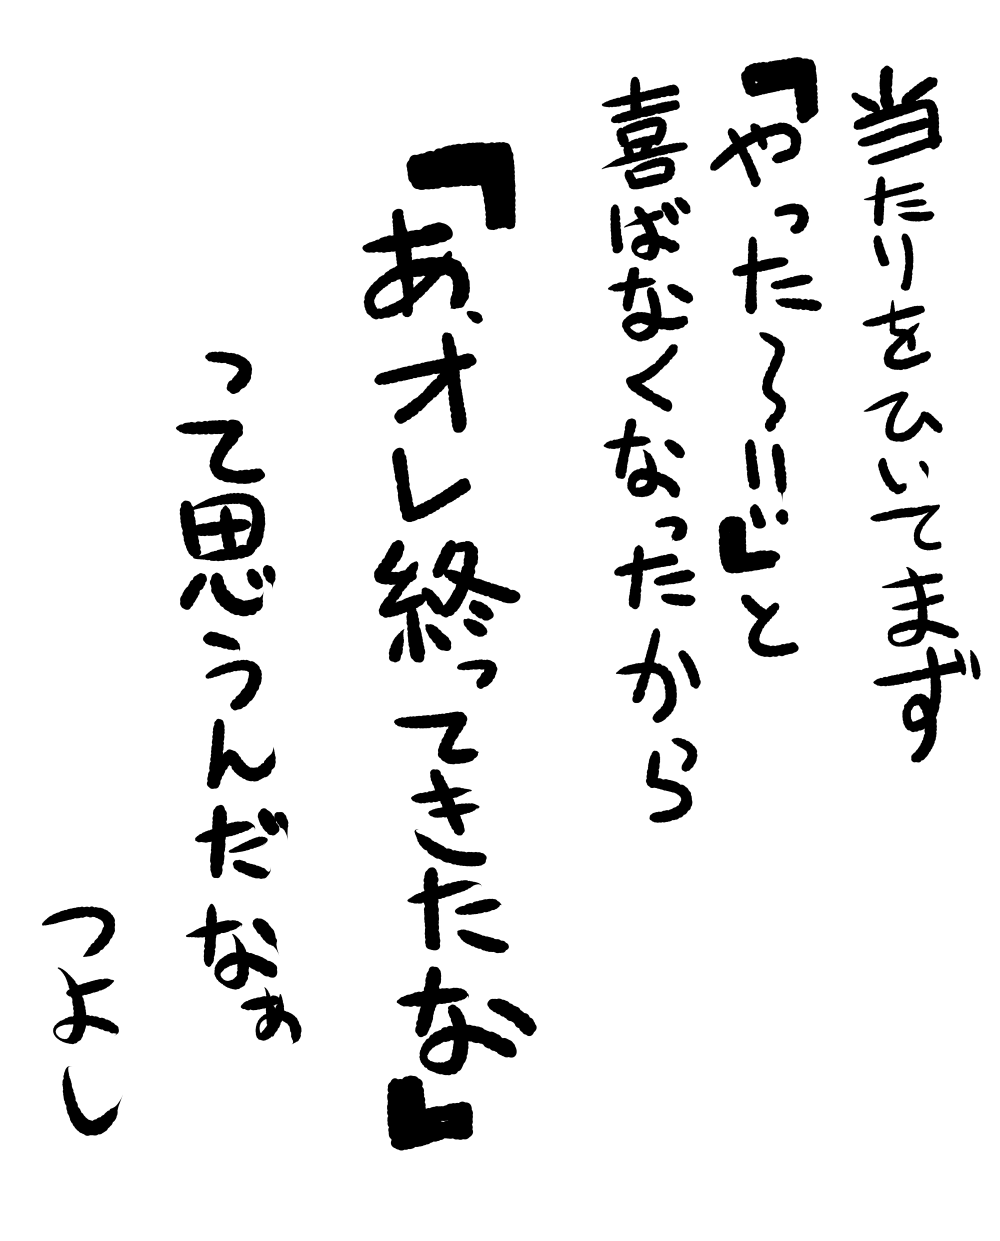 当たりをひいてまず
「やった〜!!」と
喜ばなくなったから
「あ、オレ終ってきたな」
って思うんだなぁ
つよし